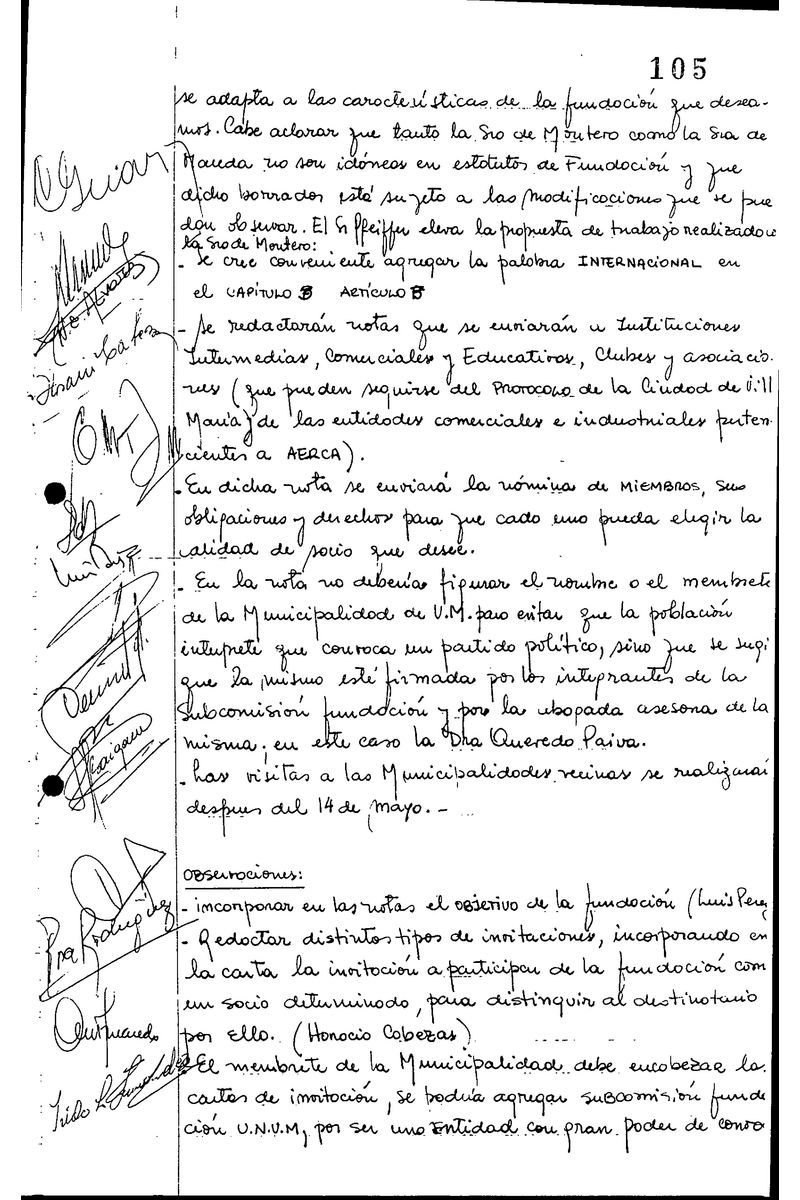 105
se adapta a las características de la fundación que desea-
mos. Cabe aclarar que tanto la Sra de Montero como la Sra de
Maueda no son idóneas en estatutos de Fundación y que
dicho borrador está sujeto a las modificaciones que se pue
dan observar. El Sr Pfeiffer eleva la propuesta de trabajo realizado
la Sra de Montero:
- Se cree conveniente agregar la palabra INTERNACIONAL en
el CAPITULO ARTICULO
- Se redactarán notas que se enviarán a Instituciones
Intermedias, Comerciales y Educativas, Clubes y asociacio-
nes (que pueden seguirse del PROTOCOLO de la Ciudad de Vill
María y de las entidades comerciales e industriales perten
cientes a AERCA).
- En dicha nota se enviará la nómina de MIEMBROS, sus
obligaciones y derechos para que cada uno pueda elegir la
calidad de socio que desee.
- En la nota no debería figurar el nombre o el membrete
de la Municipalidad de V.M. para evitar que la población
interprete que convoca un partido político, sino que se sugi
que la misma esté firmada por los integrantes de la
Subcomisión fundación y por la abogada asesora de la
misma; en este caso la Dra Quevedo Paiva.
- Las visitas a las Municipalidades vecinas se realizarái
despues del 14 de mayo. -
OBSERVACIONES:
- incorporar en las notas el OBJETIVO de la fundación (Luis Perez
- Redactar distintos tipos de invitaciones, incorporando en
la carta la invitación a participar de la fundación com
un socio determinado, para distinguir al destinatario
por ello. (Horacio Cabezas)
El membrete de la Municipalidad debe encabezar la
cartas de invitación, se podría agregar SUBCOMISIÓN funda
ción U.N.V.M, por ser una Entidad con gran poder de convo